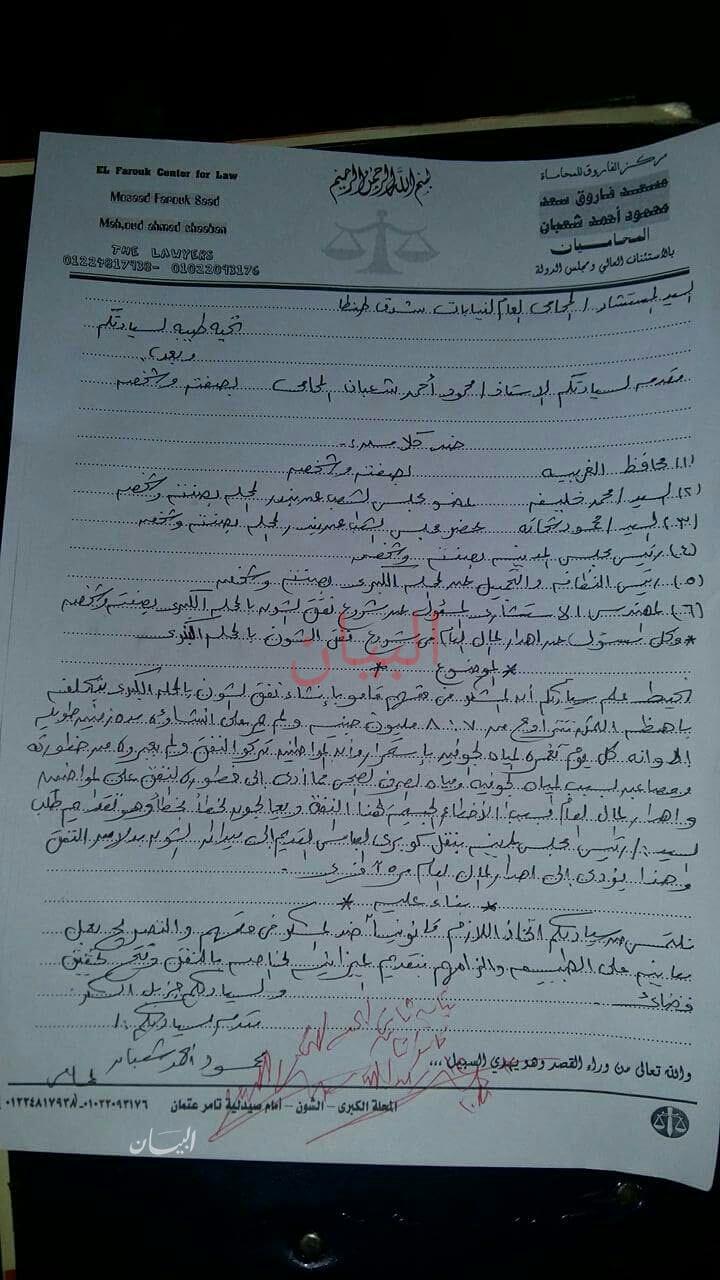 EL Farouk Center for Law
Mosaad Farouk Saad
Mahoud ahmed shaaban
THE LAWYERS
01224817938- 01022093176
بسم الله الرحمن الرحيم
مركز الفاروق للمحاماة
مسعد فاروق سعد
محمود أحمد شعبان
المحاميان
بالاستئناف العالي ومجلس الدولة
السيد المستشار / المحامى العام لنيابات شرق طنطا
تحية طيبة لسيادتكم
وبعد،
مقدمه لسيادتكم الاستاذ / محمود أحمد شعبان المحامى بصفته وشخصه
ضد كلا من
(١) محافظ الغربيه بصفته وشخصه
(٢) السيد / محمد خليفه عضو مجلس الشعب عن بندر المحله بصفته وشخصه
(٣) السيد / محمود شحاته عضو مجلس الشعب عن بندر المحله بصفته وشخصه
(٤) رئيس مجلس المدينه بصفته وشخصه
(٥) رئيس النظافه والتجميل عن المحله الكبرى بصفته وشخصه
(٦) المهندس الاستشارى المسئول عن مشروع نفق الشون بالمحله الكبرى بصفته وشخصه
* وكل مسئول عن اهدار المال العام فى مشروع نفق الشون بالمحله الكبرى
* الموضوع *
نحيط علم سيادتكم أن المشكو فى حقهم قاموا بإنشاء نفق الشون بالمحله الكبرى بتكلفه
باهظه الثمن تتراوح من ٧ : ٨ مليون جنيه ولم يمر على انشاءه مده زمنيه طويله
الا وانه كل يوم تغمره المياه الجوفيه باستمرار وان المواطنين تركوا النفق ولم يعبروه من خطورته
ومصاعبه بسبب المياه الجوفيه ومياه الصرف الصحى مما أدى الى خطوره النفق على المواطنين
واهدار المال العام بسبب الأخطاء الجسيمه لهذا النفق ويعالجون الخطأ بخطأ وهو تقديم طلب
السيد / رئيس مجلس المدينه بنقل كوبرى العباسى القديم الى ميدان الشون بدلا من النفق
وهذا يؤدى الى اهدار المال العام مره أخرى
* بناء عليه *
نلتمس من سيادتكم اتخاذ اللازم قانونيا ضد المشكو فى حقهم والتصريح بعمل
معاينه على الطبيعه والزامهم بتقديم الميزانيه الخاصه بالنفق وفتح تحقيق
قضائى
ولسيادتكم جزيل الشكر
مقدم لسيادتكم /
محمود احمد شعبان
المحامى
والله تعالى من وراء القصد وهو يهدي السبيل ،،،
المحلة الكبرى – الشون – أمام صيدلية تامر عتمان
٠١٠٢٢٠٩٣١٧٦ – ٠١٢٢٤٨١٧٩٣٨
البيان
البيان